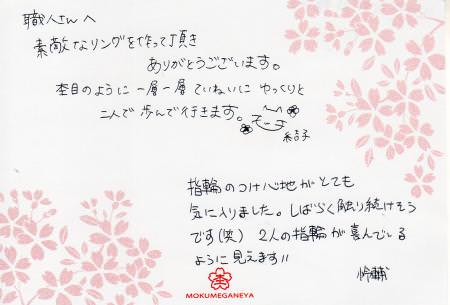 職人さんへ
素敵なリングを作って頂き
ありがとうございます。
杢目のように一層一層ていねいに ゆっくりと
二人で歩んで行きます。
結子
指輪のつけ心地がとても
気に入りました。しばらく触り続けそう
です(笑) 2人の指輪が喜んでいる
ように見えます!!
怜輔
MOKUMEGANEYA